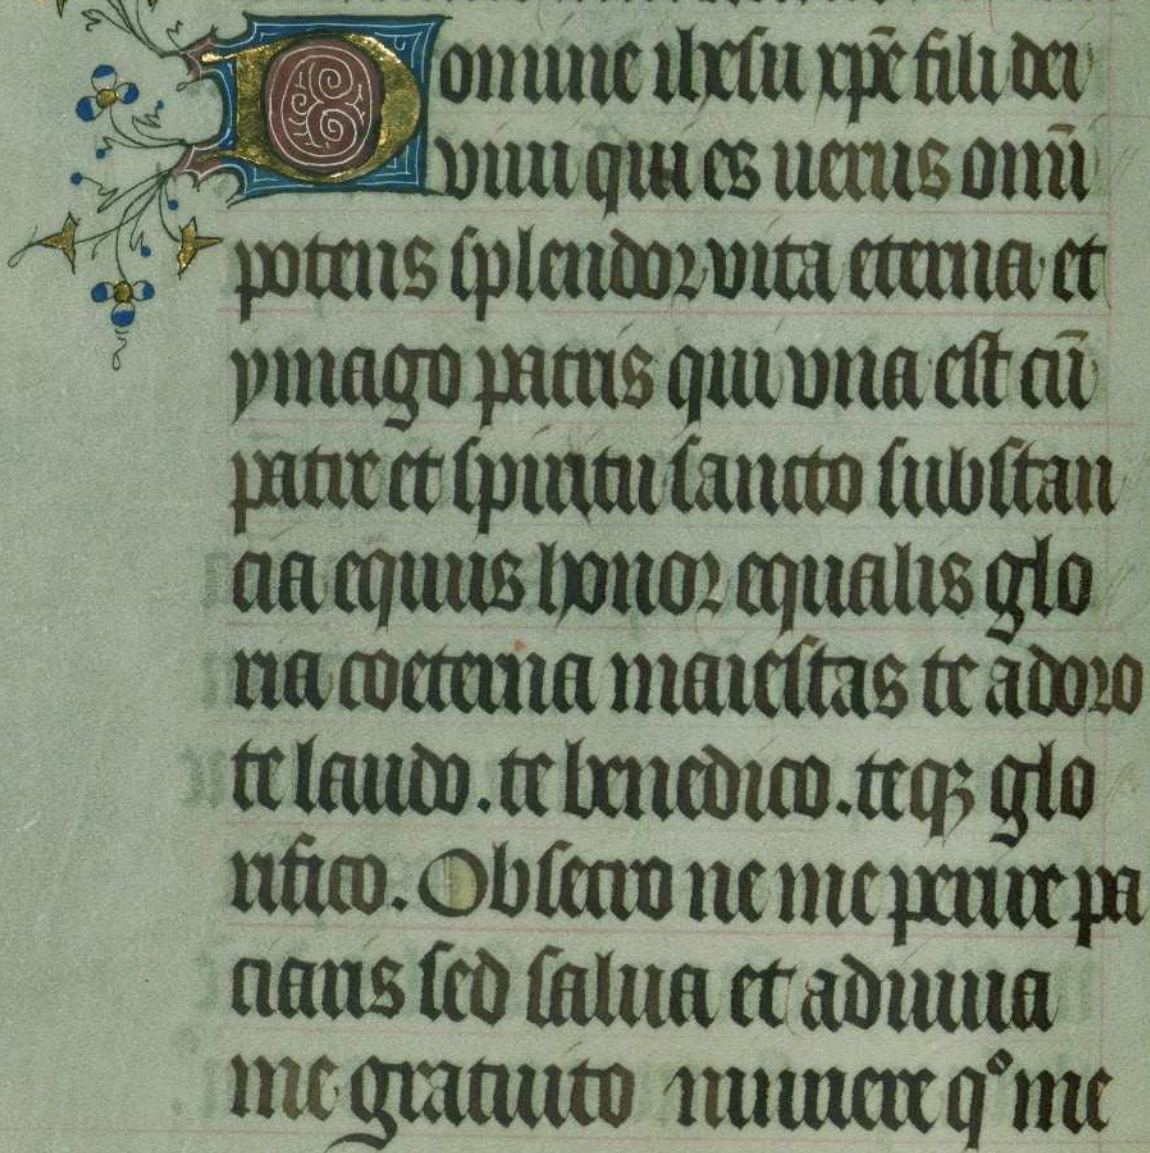 Domine ihesu xp̄e fili dei
viui qui es uerus om̄i
potens splendor vita eterna et
ymago patris qui vna est cū
patre et spiritu sancto substan
cia equus honor equalis glo
ria coeterna maiestas te adoro
te laudo . te benedico . teqꝫ glo
rifico . Obsecro ne me perire pa
ciaris sed salua et adiuua
me gratuito munere qͦ me